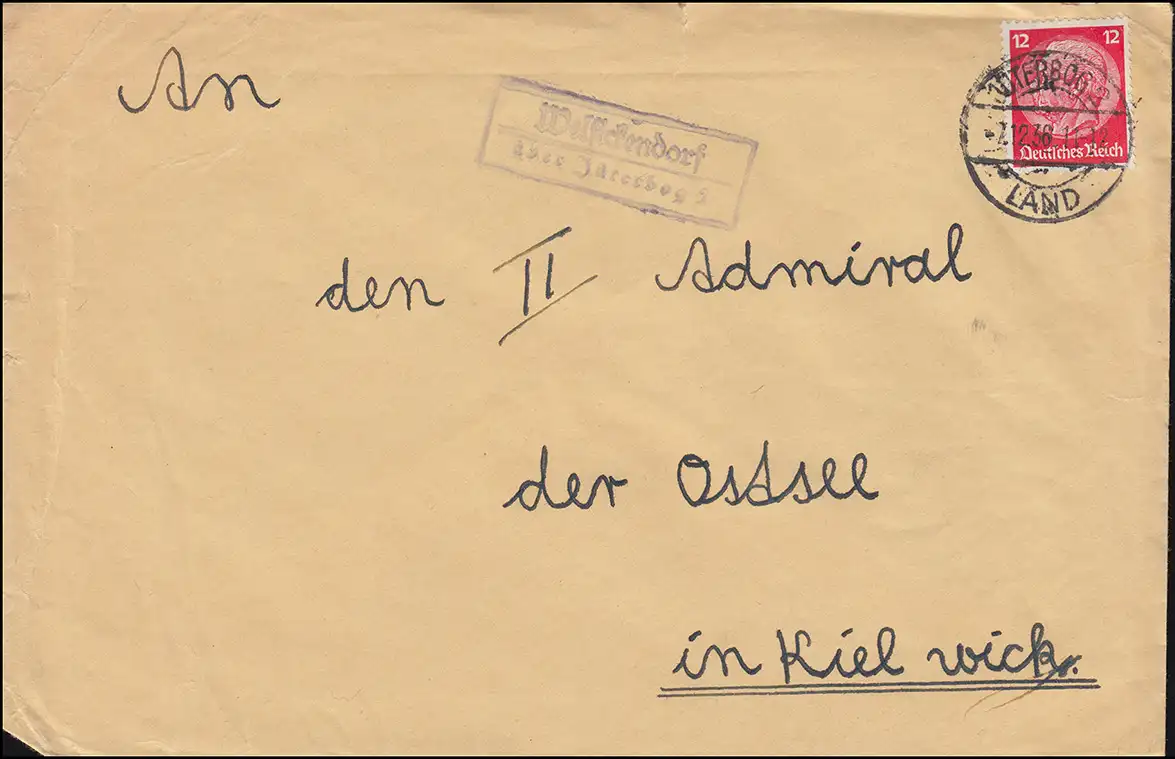 12 12
JÜTERBOG
-7.12.36 11-12
Deutsches Reich
LAND
An
Welsickendorf
über Jüterbog 2
den II Admiral
der Ostsee
in Kiel wick.